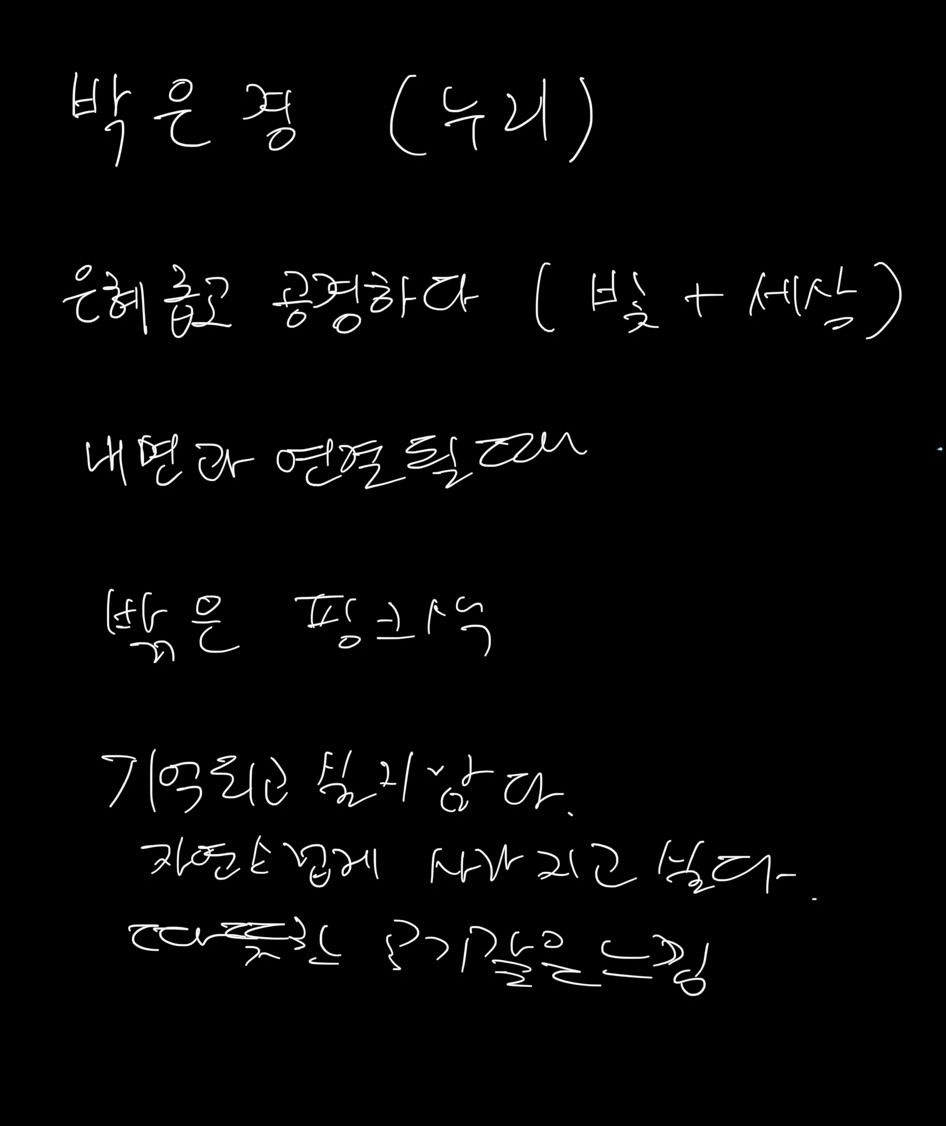 박은경 (누리)
은혜롭고 공경하다 (빛 + 세상)
내면과 연결될때
밝은 핑크색
기억되고 싶지 않다.
자연스럽게 사라지고 싶다.
따뜻한 온기같은 느낌